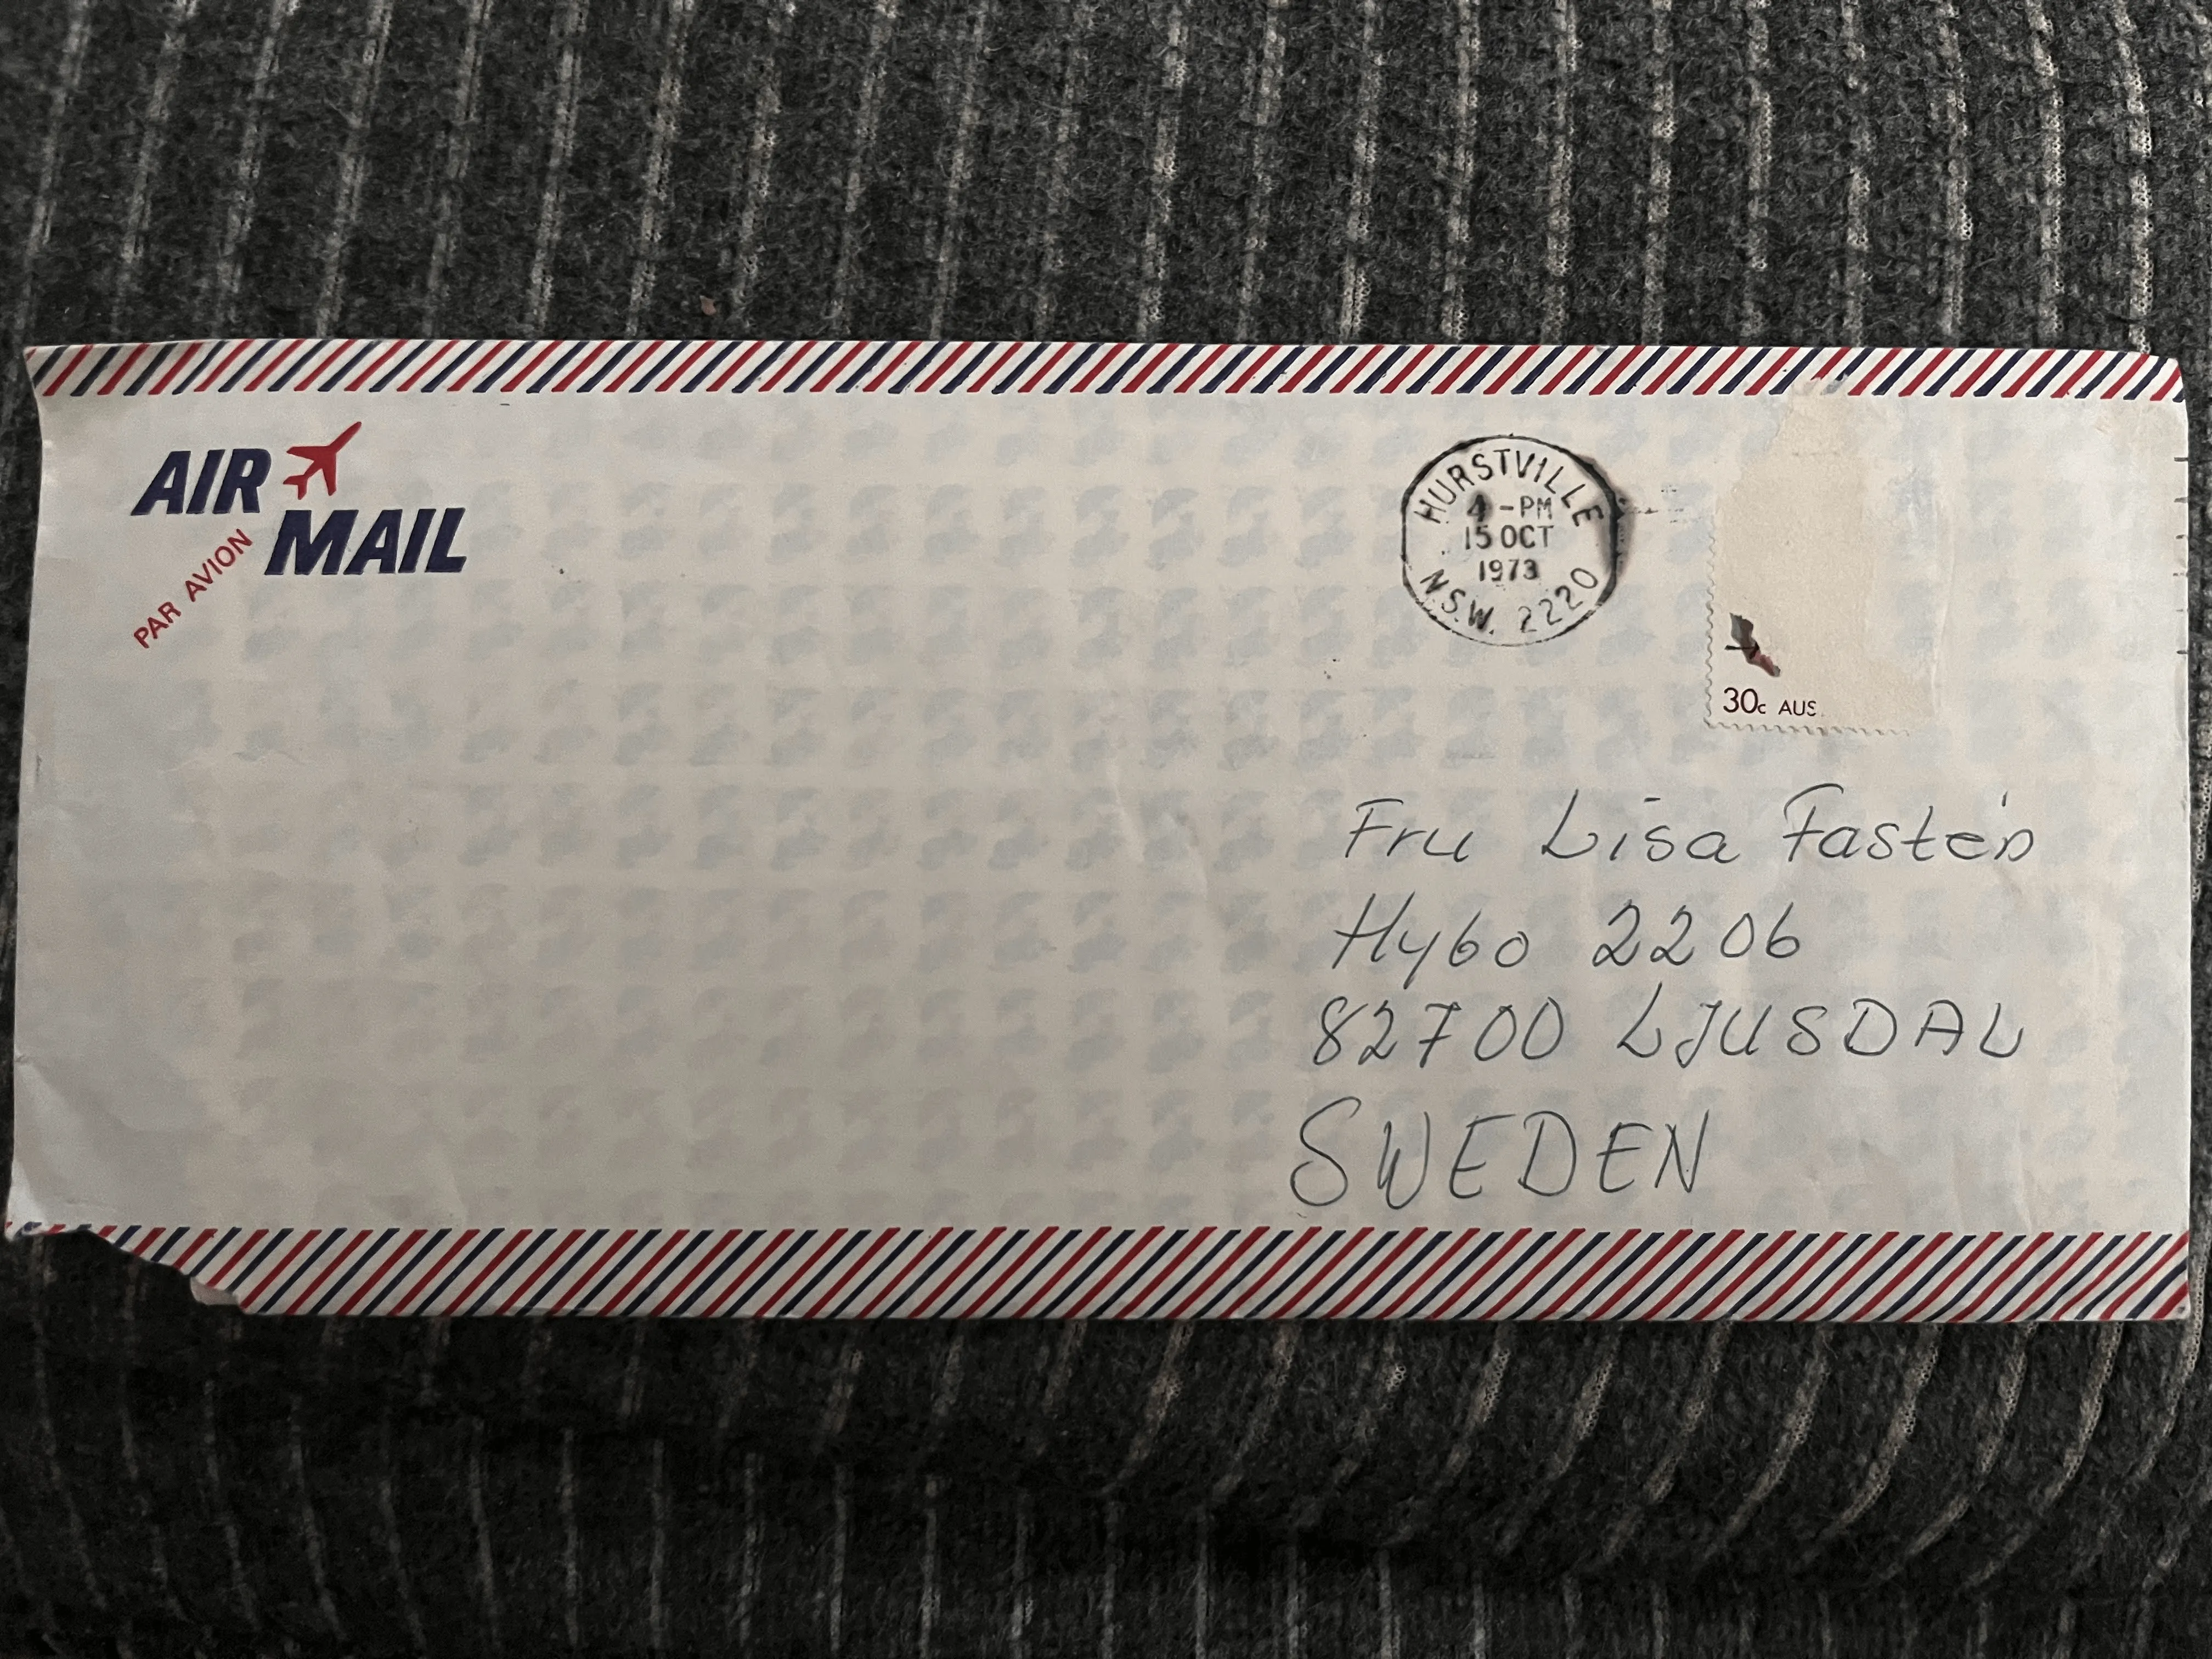 AIR
MAIL
PAR AVION
HURSTVILLE
4-PM
15 OCT
1973
N.S.W. 2220
30c AUS
Fru Lisa Fastén
Hybo 2206
82700 LJUSDAL
SWEDEN